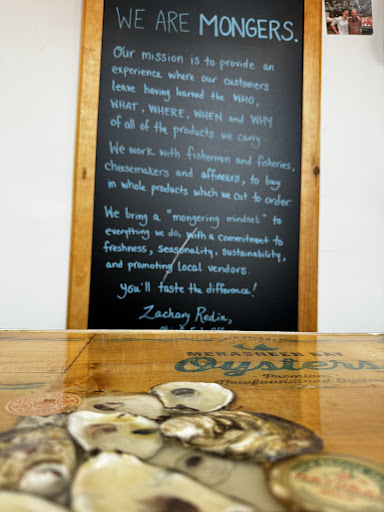 WE ARE MONGERS.
Our mission is to provide an
experience where our customers
leave having learned the WHO,
WHAT, WHERE, WHEN and WHY
of all of the products we carry.
We work with fishermen and fisheries,
cheesemakers and affineurs, to buy
in whole products which we cut to order.
We bring a "mongering mindset" to
everything we do, with a commitment to
freshness, seasonality, sustainability,
and promoting local vendors.
You'll taste the difference!
Zachary Redin,
MERASHEEN BAY
Oysters
Premium
Newfoundland